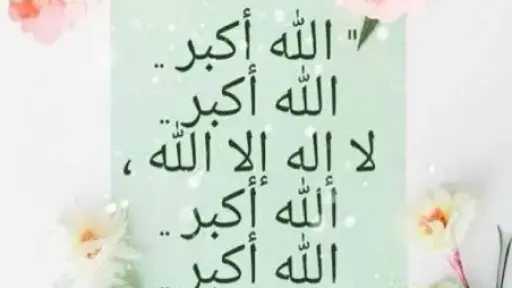 " الله أكبر ..
الله أكبر ..
لا إله إلا الله ،
الله أكبر ..
الله أكبر ..